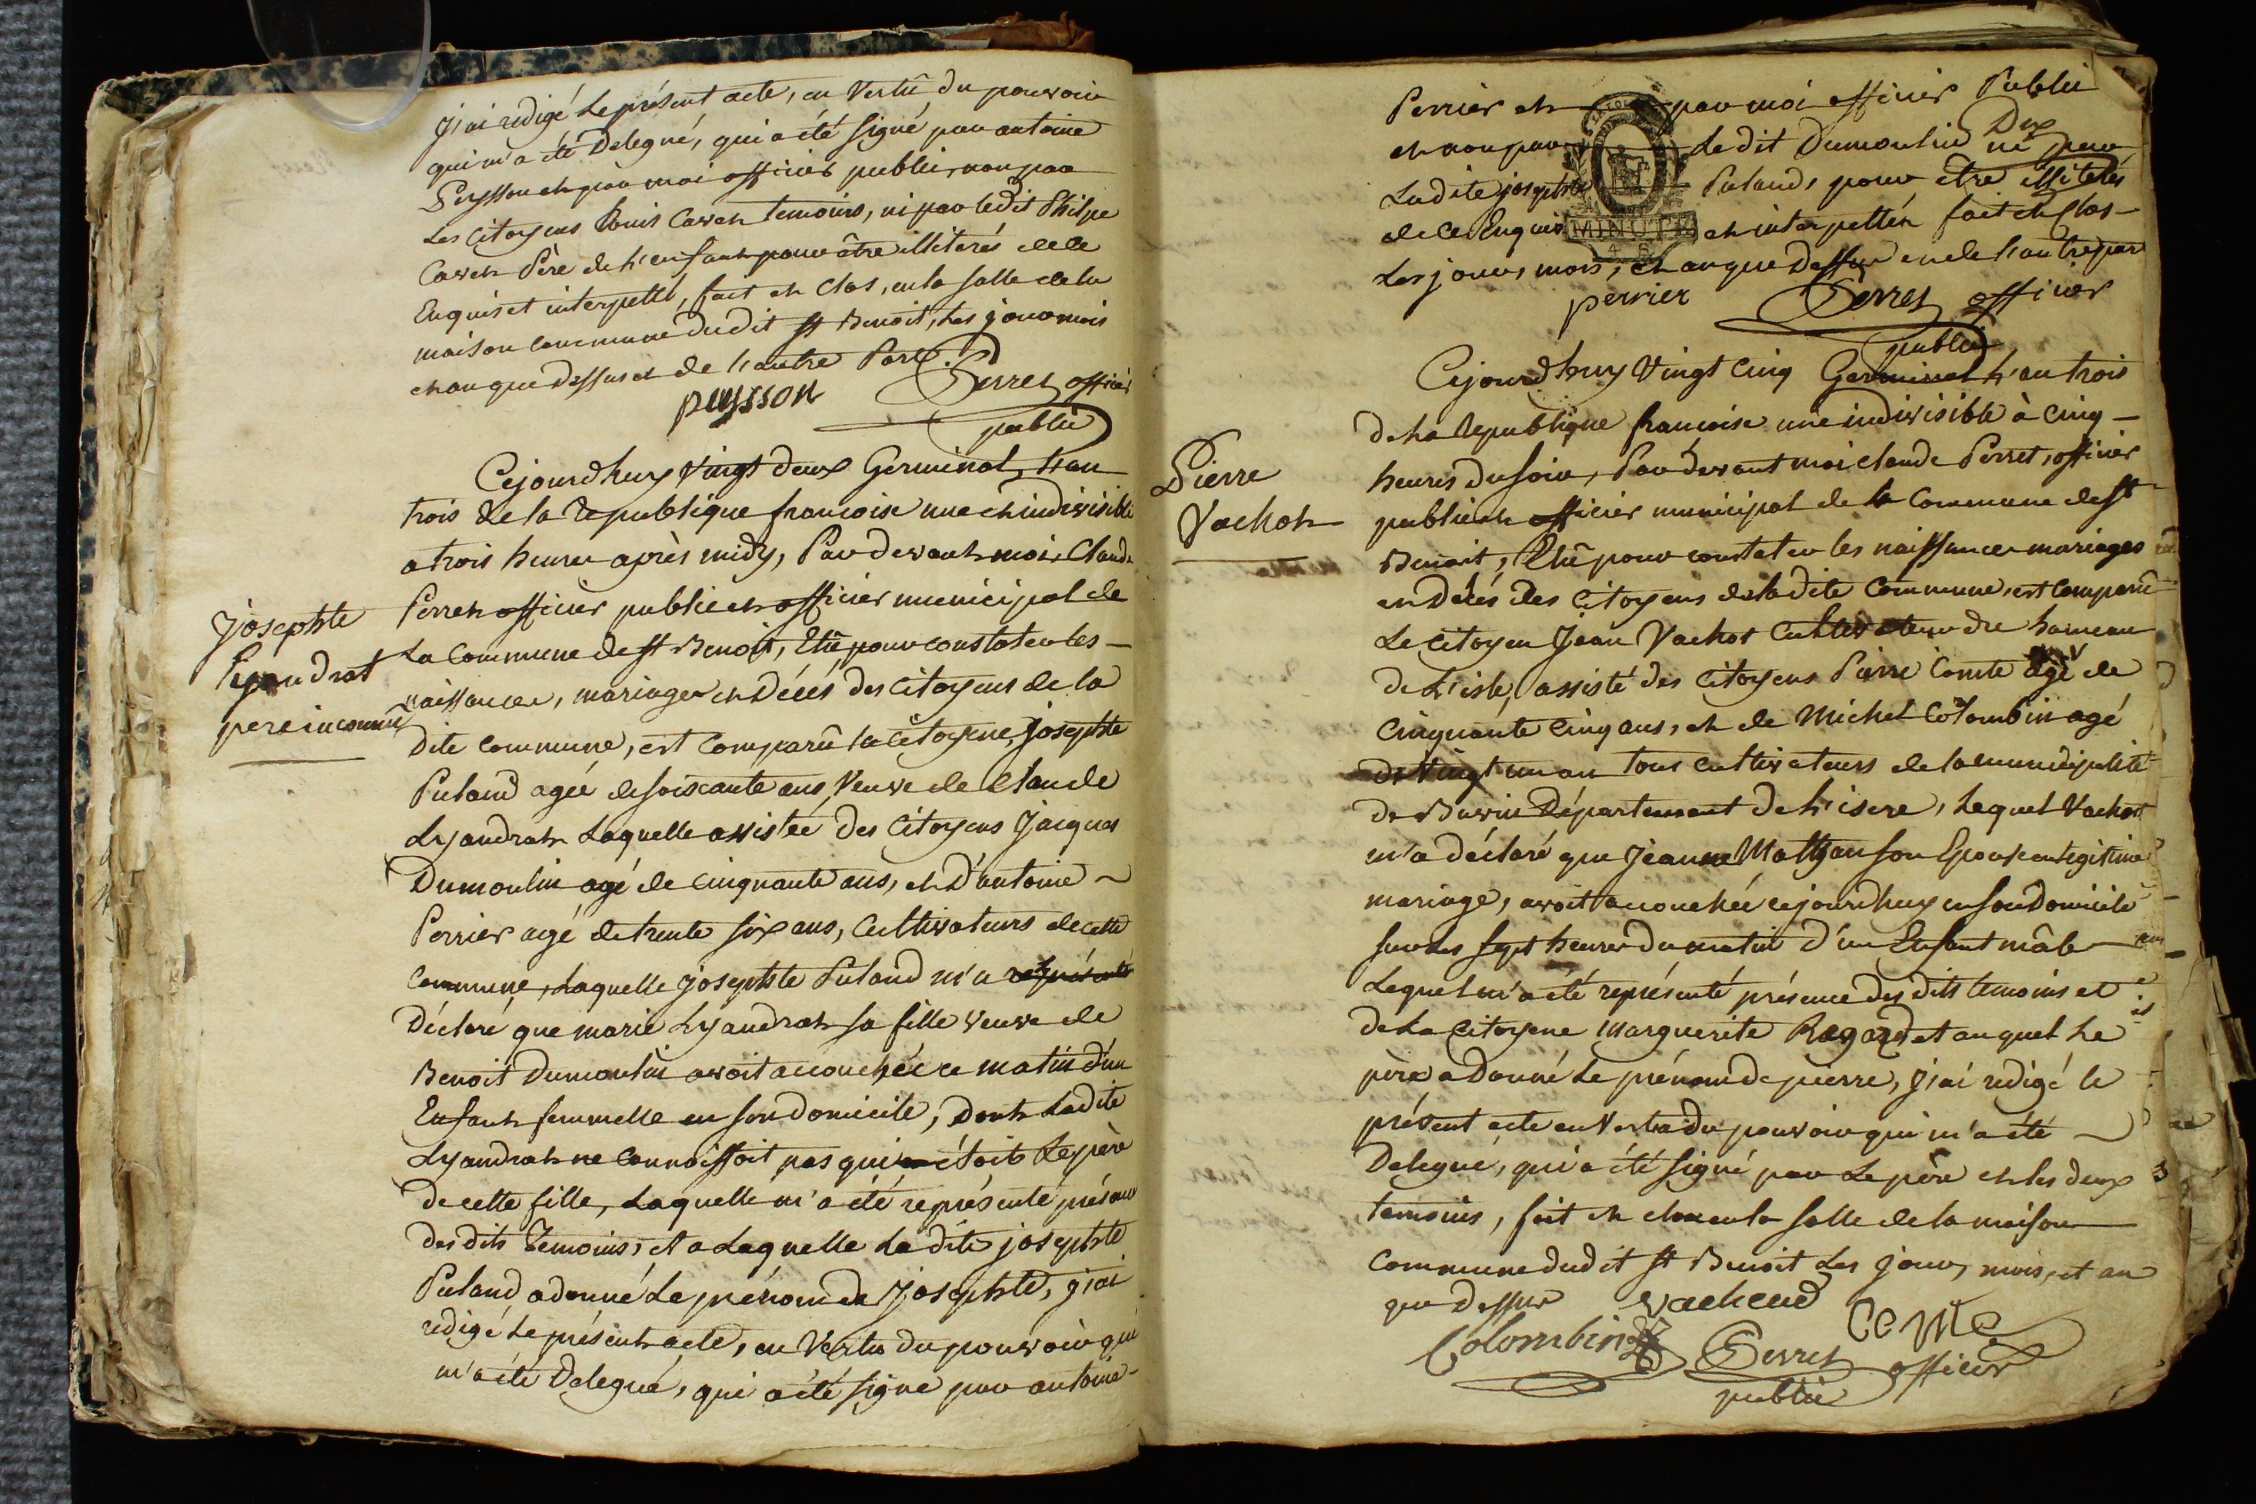 j'ai redigé le présent acte, en Vertû du pouvoir
qui m'a été Delegué, qui a été signé par antoine
Peysson et par moi officier public, non par
Les Citoyens Louis Cavet temoins, ni par ledit Philpe
Cavet Père de l'enfant pour être illiterés de ce
Enquis et interpellé, fait et Clos, en la salle de la
maison commune dudit st Benoit, Les jour mois
et an que dessus et de l'autre Part.
peysson Perret officier
public
Cejourdhuy vingt deux Germinal, l'an
trois de la republique francoise une et indivisible
a trois heures après midy, Par devant moi, Claude
Perret officier public et officier municipal de
La Commune de st Benoit, Elû pour constater les
naissances, mariages et Décés des Citoyens de la
dite commune, est comparû la Citoyene, josephte
Pulaud agée de soixante ans, Veuve de Claude
Lyandrat Laquelle assistée des Citoyens Jacques
Dumoulin agé de cinquante ans, et D'antoine
Perrier agé de trente six ans, Cultivateurs de cette
Commune, Laquelle josephte Pulaud m'a
Déclaré que marie Lyandrat sa fille veuve de
Benoit Dumoulin avoit accouchée ce matin d'un
Enfant femmelle en son domicile, Dont Ladite
Lyandrat ne connoissoit pas qui étoit Le père
de cette fille, Laquelle m'a été représenté présance
des dits Temoins, et a Laquelle La dite josephte
Pulaud a donné Le prénom de Josephte, j'ai
redigé Le présent acte, en Vertu du pouvoir qui
m'a été Delegué, qui a été signé par antoine
josephte
Lyandrat
pere inconnû
Perrier et par moi officier Public
et non par Le dit Dumoulin ni par
Ladite josephte Pulaud, pour être illiterés
de ce Enquis et interpellés fait et Clos
Les jour, mois, et an que dessus et de l'autre part
MINUTE
perrier Perret officier
public
Cejourdhuy Vingt Cinq Germinal l'an trois
de la republique francoise une indivisible à cinq
heures du soir, Par devant moi claude Perret, officier
public et officier municipal de la Commune de st
Benoit, Elû pour constater les naissances mariages
et Décés des Citoyens de ladite Commune, est comparû
Le Citoyen Jean Vachot Cultivateur du hameau
de L'isle, assisté des Citoyens Pierre Comte agé de
Cinquante Cinq ans, et de Michel Colombin agé
de Vingt un an tous cultivateurs de la municipalité
de Département de L'isere, Lequel Vachot
m'a déclaré que Jeanne son Epouse en legitime
mariage, avoit accouchée cejourdhuy en son Domicile
sur les sept heures du matin d'un Enfant mâle
Lequel m'a été représenté présence des dits temoins et
de La Citoyene marguerite Ragard et auquel Le
père a donné Le prénom de pierre, j'ai redigé le
présent acte en Vertu du pouvoir qui m'a été
Delegué, qui a été signé par Le père et les deux
temoins, fait et clos en la salle de la maison
commune dudit st Benoit Les jour, mois, et an
que dessus vachoud comte
Colombin Perret officier
public
Pierre
Vachot